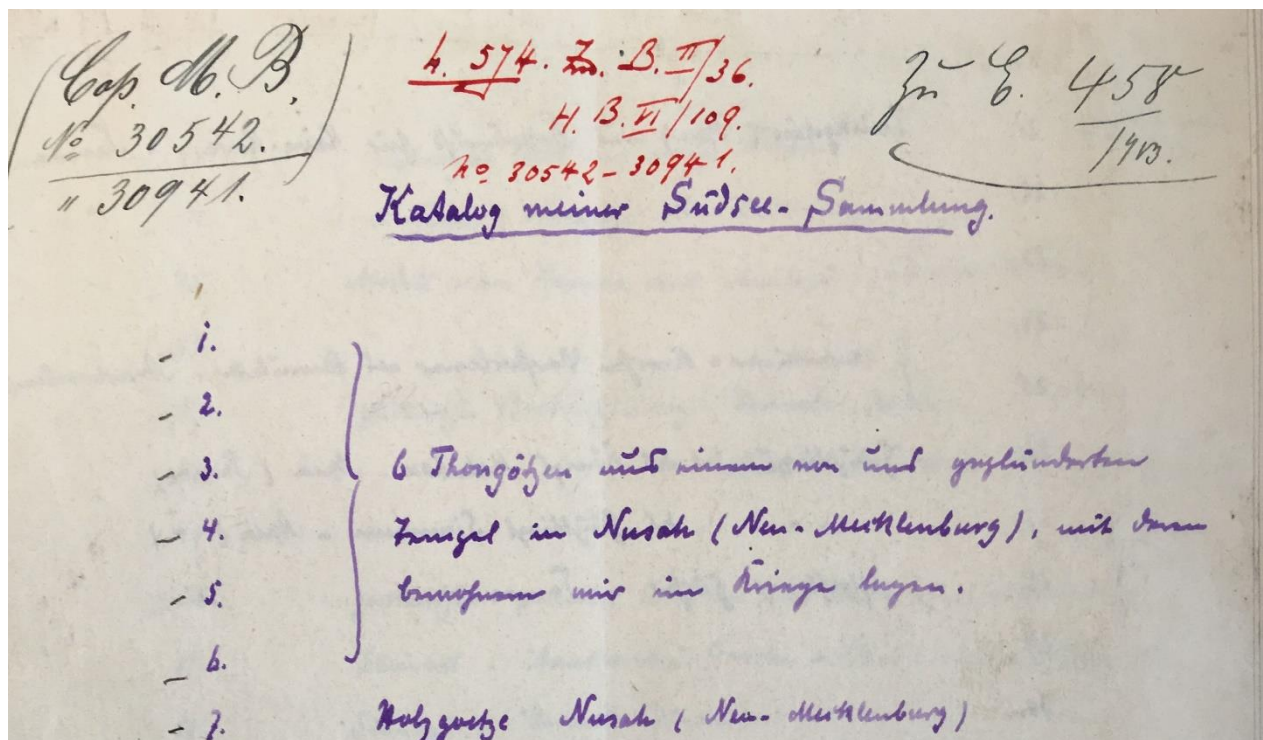 Cop. M. B.
№ 30542.
" 30941.
h. 574. Zu. B. II/36.
H. B. VI/109.
no 30542-30941.
Zu E. 458
/1913.
Katalog meiner Südsee-Sammlung.
1.
2.
3. 6 Thongötzen aus einem von uns geplünderten
4. Tempel in Nusah (Neu-Mecklenburg), mit deren
5. bewohnern wir im Kriege lagen.
6.
7. Holzgoetze Nusah (Neu-Mecklenburg)